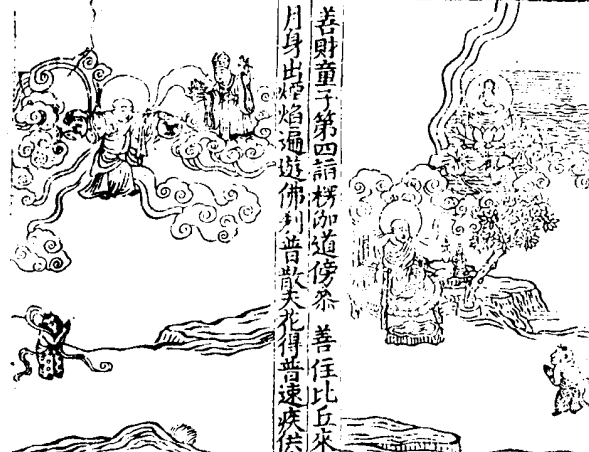 善財童子第四詣楞伽道傍叅 善住比丘來
月身出煙焰遍遊佛刹普散天花得普速疾供